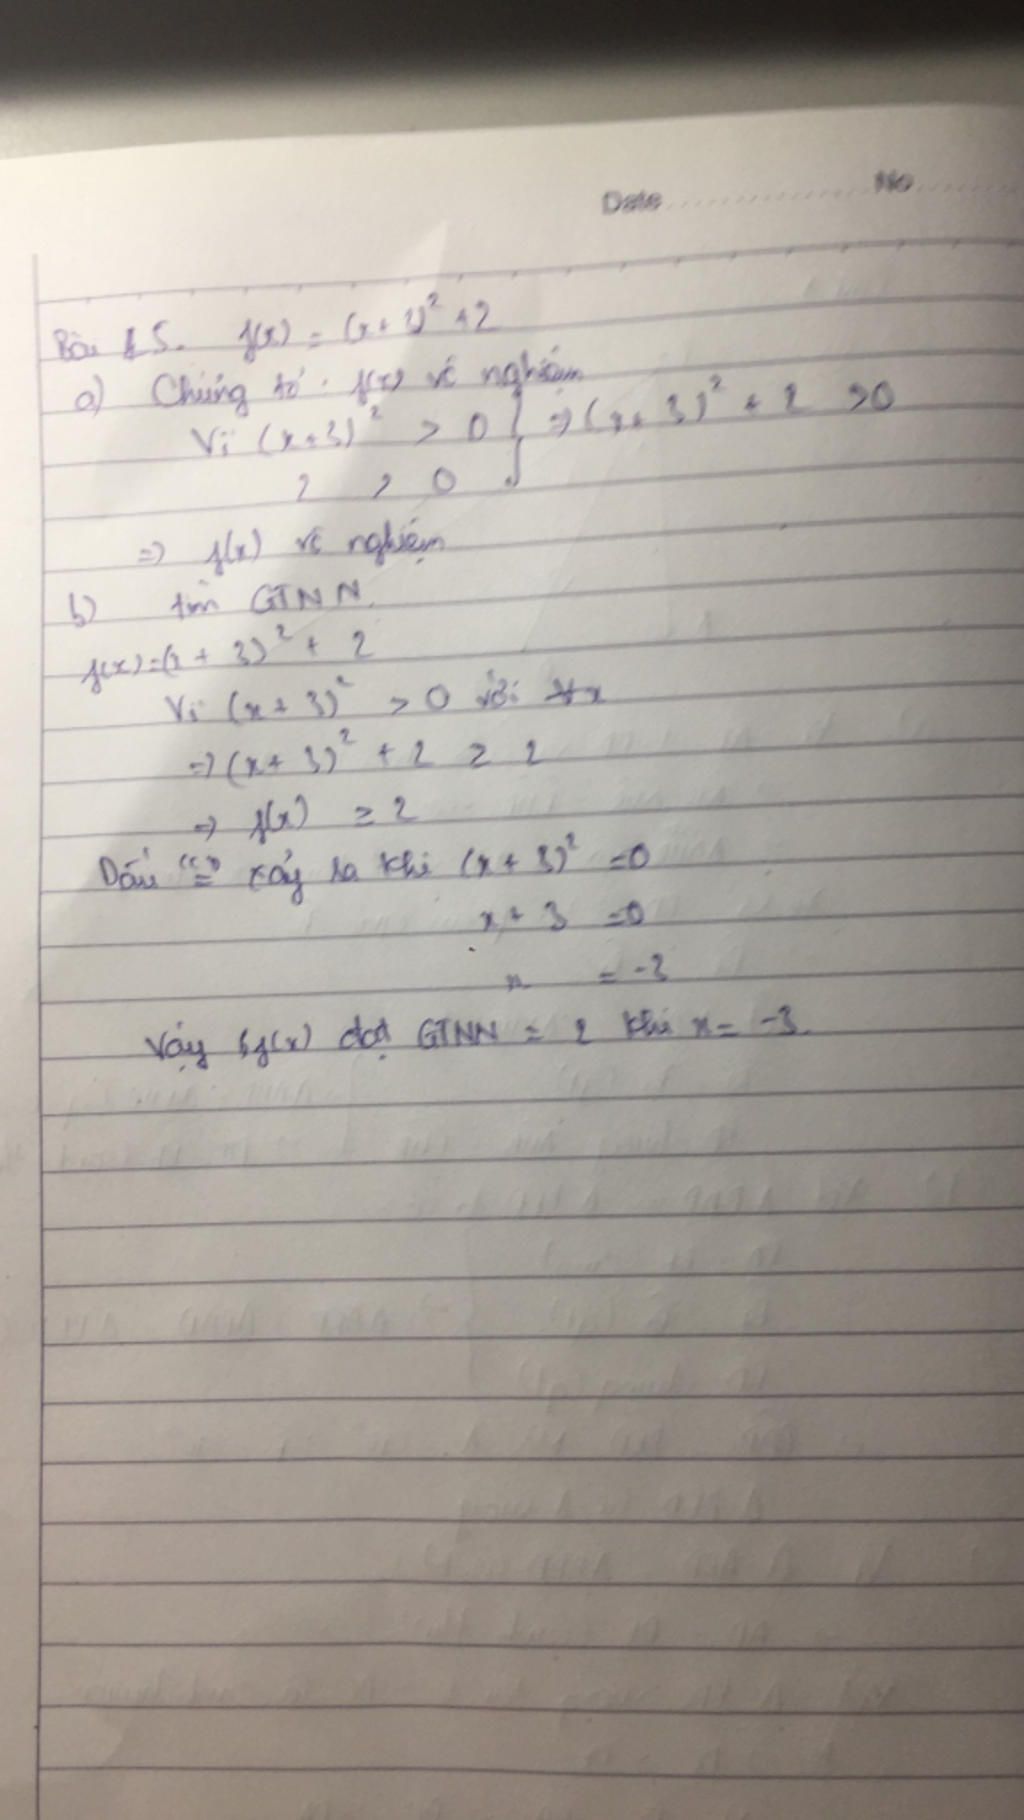 Date No
Bài 15. f(x) = (x+3)² +2
a) Chứng tỏ: f(x) vô nghiệm
Vì (x+3)² > 0 } => (x+3)² + 2 >0
2 > 0
=> f(x) vô nghiệm
b) tìm GTNN
f(x)=(x + 3)² + 2
Vì (x + 3)² > 0 với ∀x
=> (x+ 3)² + 2 ≥ 2
=> f(x) ≥ 2
Dấu "=" xảy ra khi (x + 3)² =0
x + 3 =0
x = -3
Vậy f(x) đạt GTNN = 2 khi x= -3.